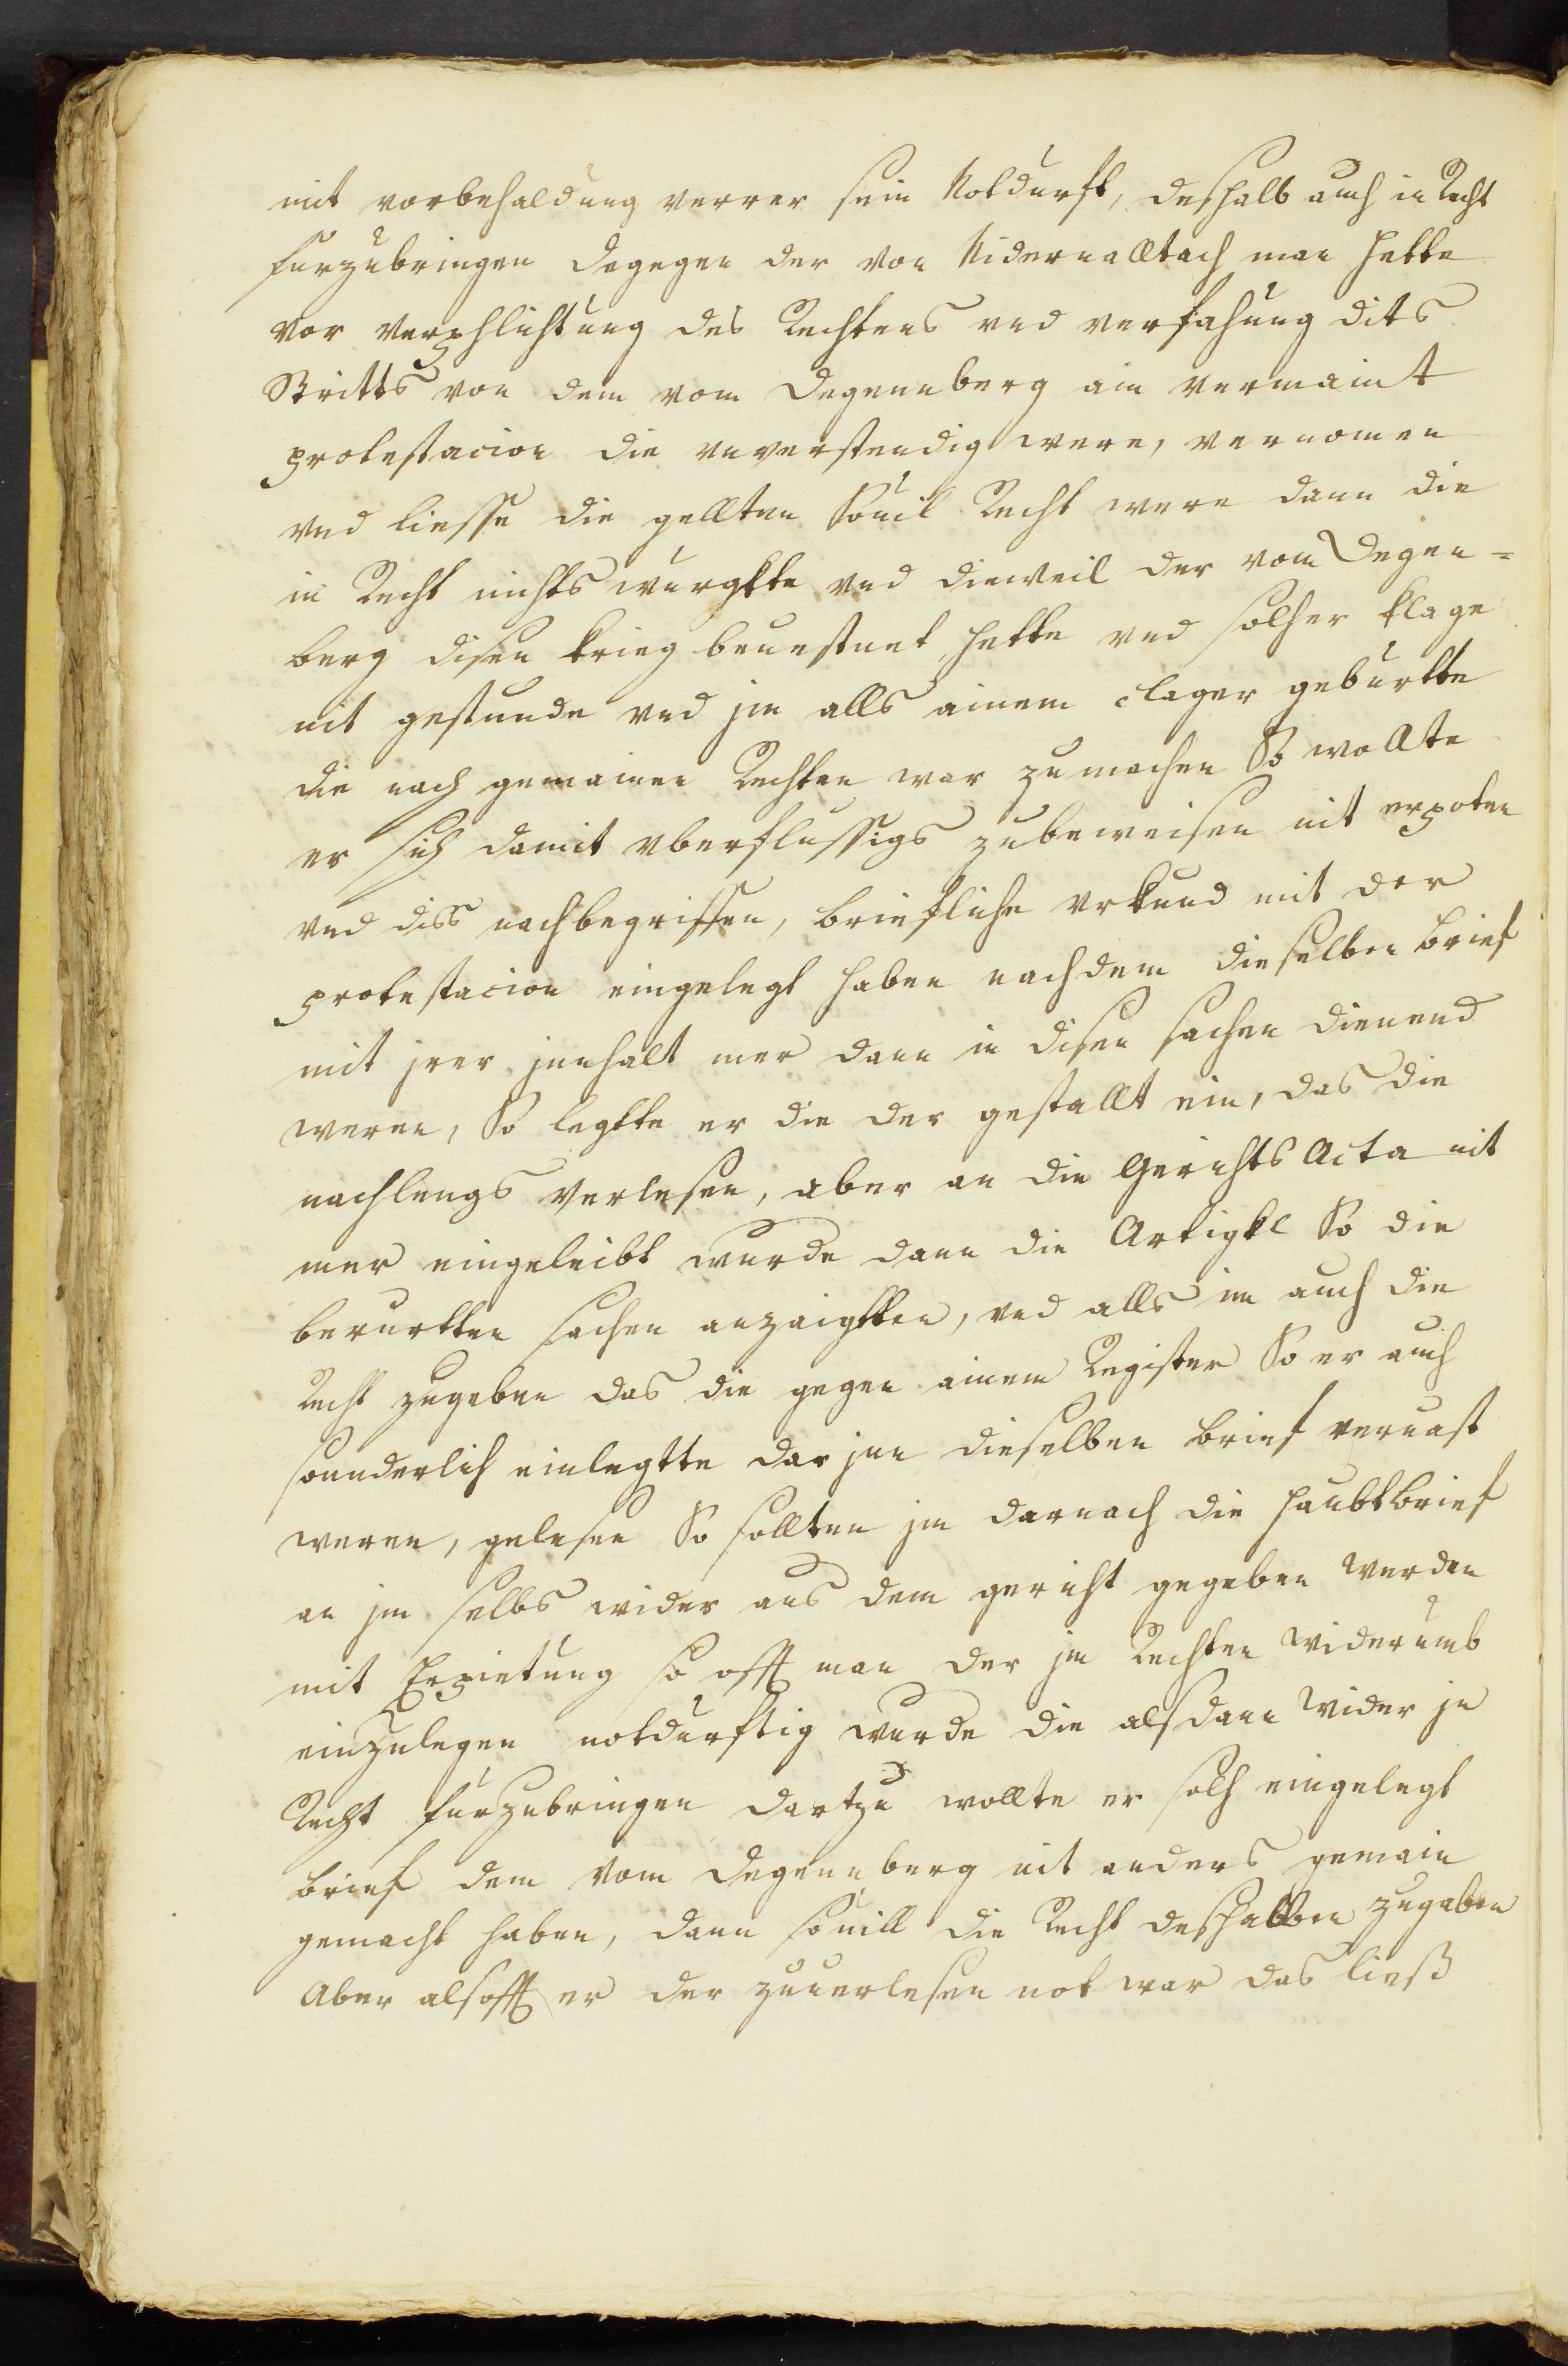 mit vorbehaldung verrer sein Notdurft, deshalb auch in Recht
furzubringen dagegen der von Nidernalltach man hette
vor verphlichtung des Rechtens vnd verfahung dits
Stritts von dem vom Degennberg ain vermaint
protestacion die vnverstendig were, vernomen
vnd liesse die gellten Souil Recht were dann die
in Recht nichts wurgkte vnd dieweil der vom Degen=
berg disen krieg beuestnet, hette vnd solher klage
nit gestunde vnd jm alls ainem clager geburtte
die nach gemainen Rechten war zumachen So wollte
er sich damit vberflussigs zubeweisen nit erpoten
vnd diss nachbegriffen, briefliche vrkund mit der
protestacion eingelegt haben nachdem dieselben brief
mit jrer jnnhalt mer dann in disen sachen dienend
weren, So legtte er die der gestallt ein, das die
nachlengs verlesen, aber an die Gerichts Acta nit
mer eingeleibt wurde dann die Artigkl So die
berurtten sachen anzaigtten, vnd alls im auch die
Recht zugeben das die gegen ainem Register So er auch
sonnderlich einlegtte dar jnn dieselben brief veruast
weren, gelesen So sollten jm darnach die haubtbrief
an jm selbs wider aus dem gericht gegeben werden
mit Erpietung so offt man der jm Rechten widerumb
einzulegen notdurftig wurde die alsdann wider jn
Recht furzubringen dartzu wollte er solh eingelegt
brief dem vom Degennberg nit anders gemain
gemacht haben, dann souill die Recht deshalben zugaben
Aber alsofft er der zuuerlesen not war das ließ